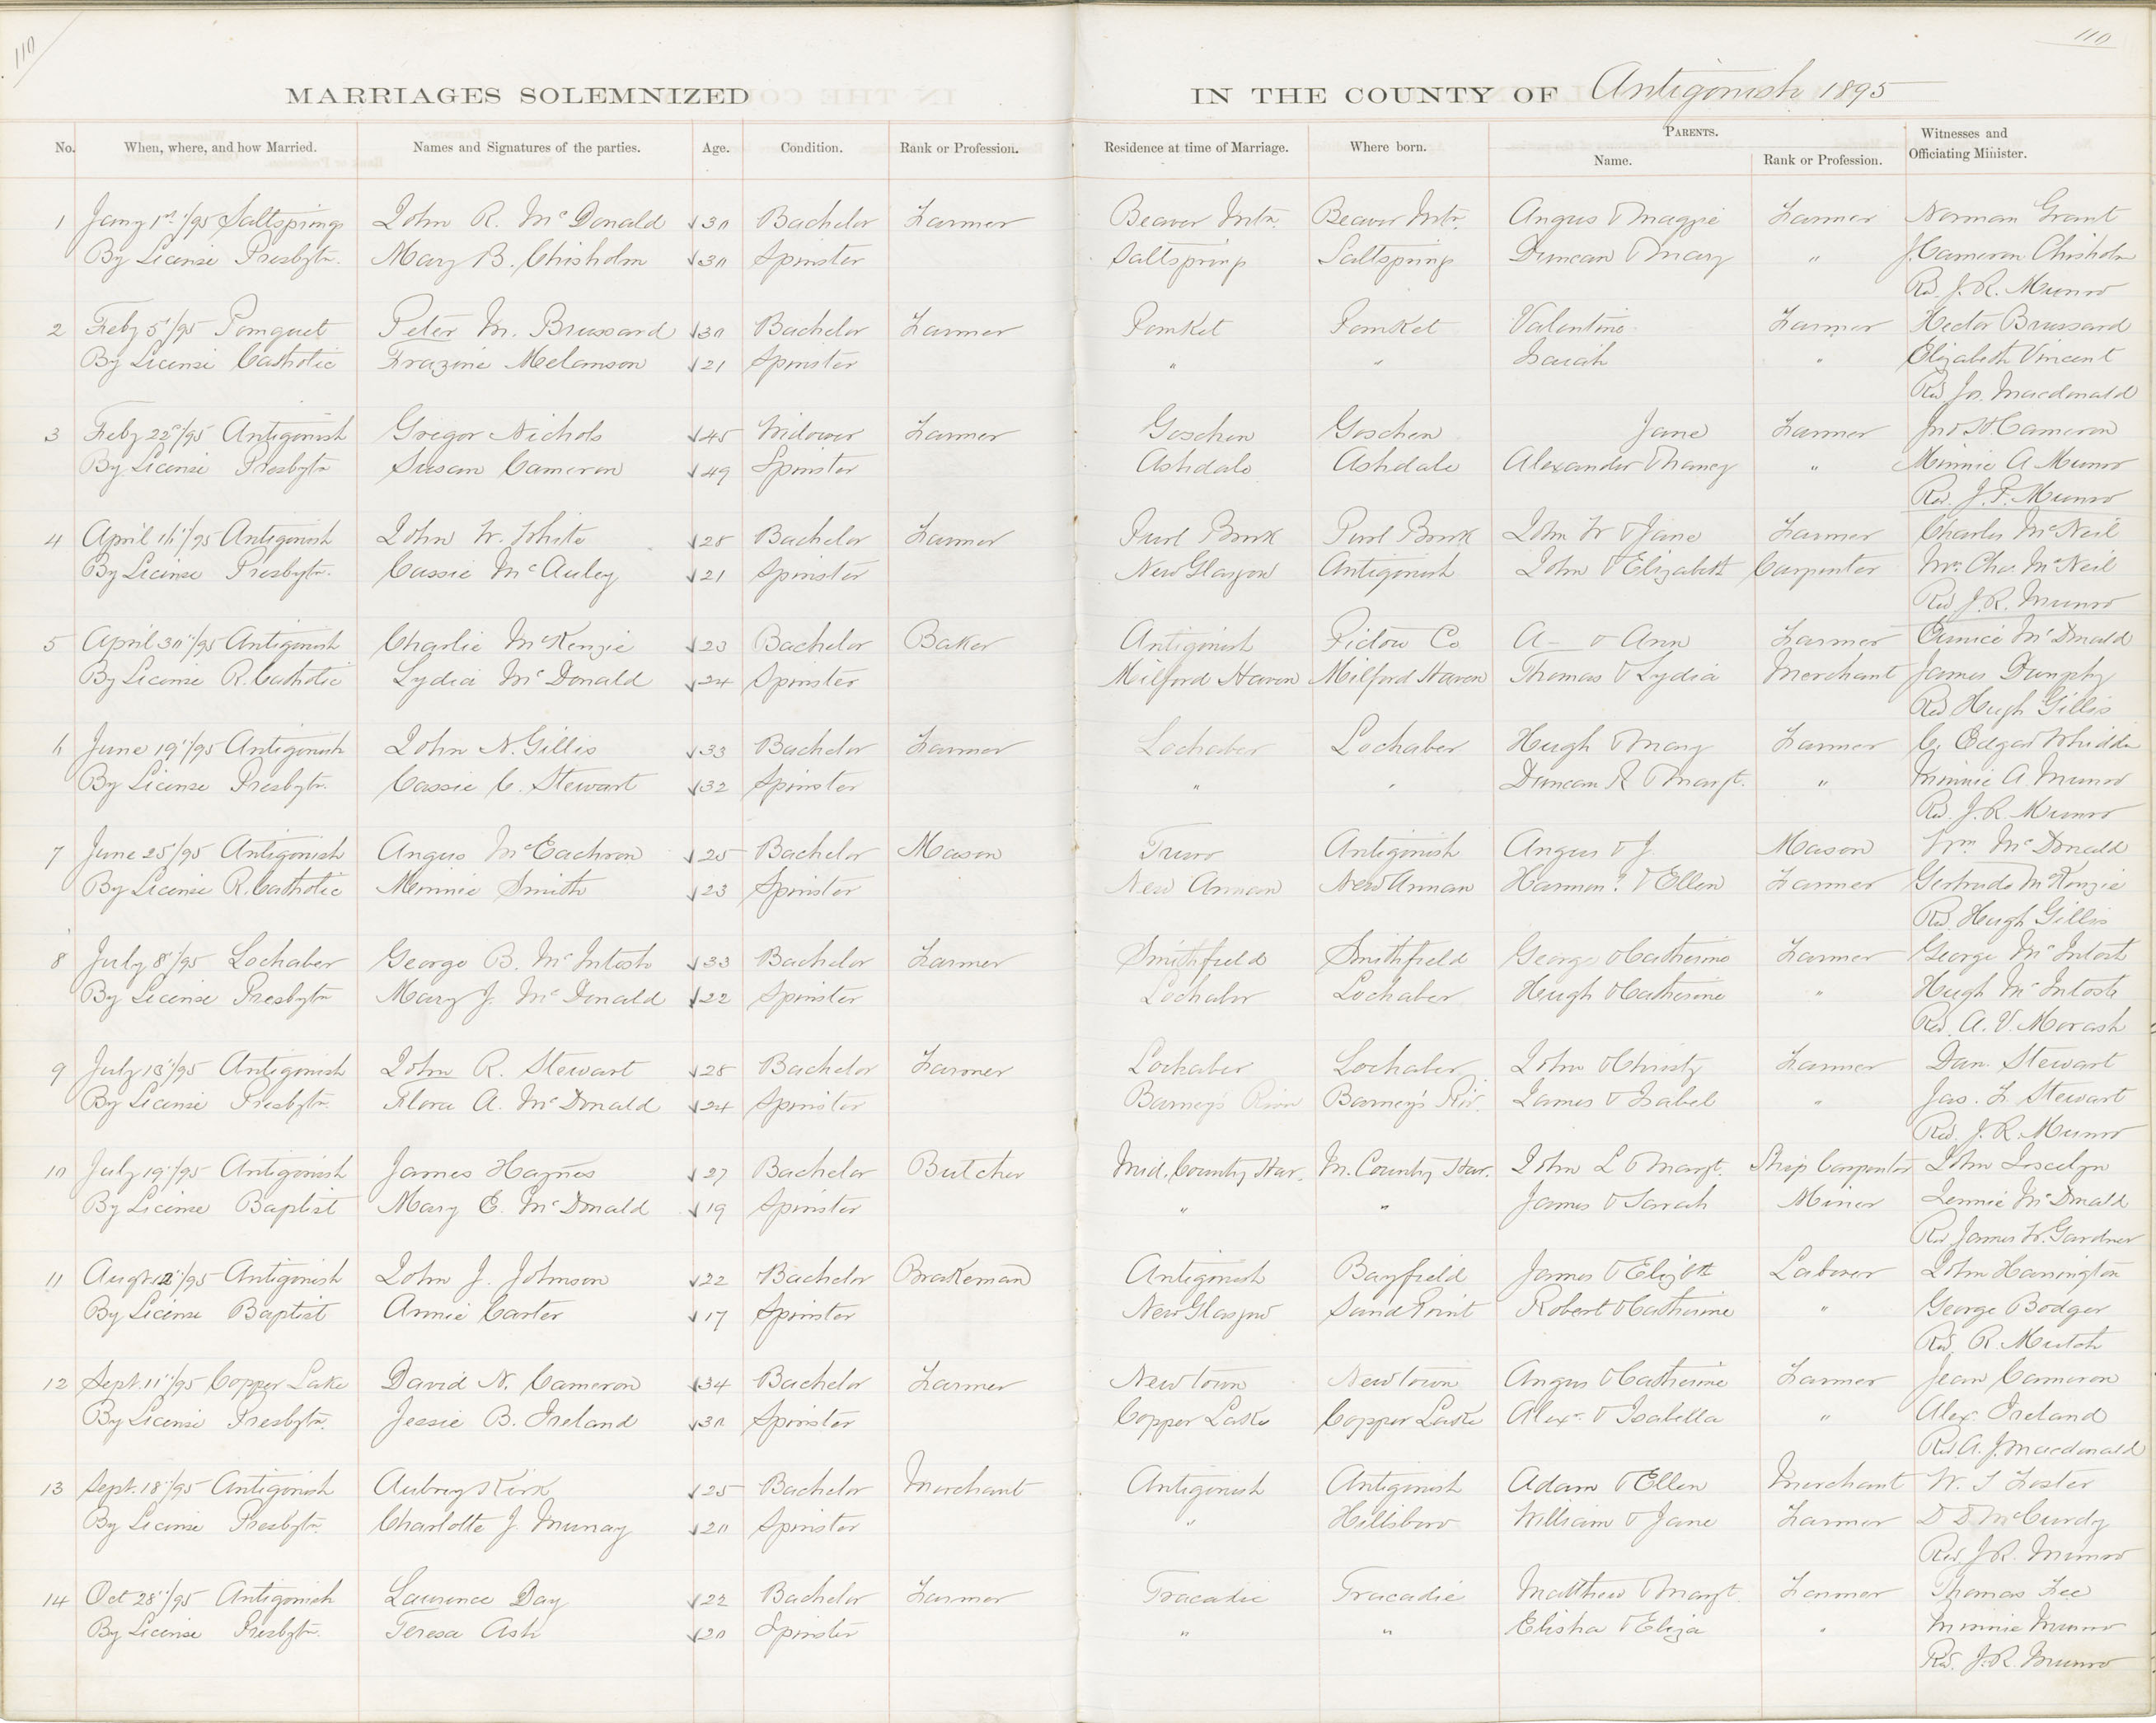 110
110
MARRIAGES SOLEMNIZED IN THE COUNTY OF Antigonish 1895
No. When, where, and how Married. Names and Signatures of the parties. Age. Condition. Rank or Profession. Residence at time of Marriage. Where born. PARENTS. Name. Rank or Profession. Witnesses and Officiating Minister.
1 Jany 1st/95 Saltsprings John R. McDonald √30 Bachelor Farmer Beaver Mtn. Beaver Mtn. Angus & Maggie Farmer Norman Grant
By License Presbytn. Mary B. Chisholm √30 Spinster Saltsprings Saltsprings Duncan & Mary " J. Cameron Chisholm
Rev. J. R. Munro
2 Feby 5"/95 Pomquet Peter M. Brussard √30 Bachelor Farmer Pomket Pomket Valentine Farmer Hector Brussard
By License Catholic Frazine Melanson √21 Spinster " " Isaiah " Elizabeth Vincent
Rev. Jos. Macdonald
3 Feby 22nd/95 Antigonish Gregor Nichols √45 Widower Farmer Goschen Goschen Jane Farmer Jno H Cameron
By License Presbytn Susan Cameron √49 Spinster Ashdale Ashdale Alexander & Nancy " Minnie A Munro
Rev. J. F. Munro
4 April 16"/95 Antigonish John W. White √28 Bachelor Farmer Purl Brook Purl Brook John W & Jane Farmer Charles McNeil
By License Presbytn. Cassie McAuley √21 Spinster New Glasgow Antigonish John & Elizabeth Carpenter Mrs. Chas. McNeil
Rev. J. R. Munro
5 April 30"/95 Antigonish Charlie McKenzie √23 Bachelor Baker Antigonish Pictou Co A— & Ann Farmer Eunice McDonald
By License R. Catholic Lydia McDonald √24 Spinster Milford Haven Milford Haven Thomas & Lydia Merchant James Dunphy
Rev Hugh Gillis
6 June 19"/95 Antigonish John N. Gillis √33 Bachelor Farmer Lochaber Lochaber Hugh & Mary Farmer C. Edgar Whidden
By License Presbytn. Cassie C. Stewart √32 Spinster " " Duncan R & Margt. " Minnie A Munro
Rev. J. R. Munro
7 June 25/95 Antigonish Angus McEachron √25 Bachelor Mason Truro Antigonish Angus & J. Mason Wm McDonald
By License R. Catholic Minnie Smith √23 Spinster New Annan New Annan Harmon? & Ellen Farmer Gertrude McKenzie
Rev. Hugh Gillis
8 July 8"/95 Lochaber George B. McIntosh √33 Bachelor Farmer Smithfield Smithfield George & Catherine Farmer George McIntosh
By License Presbytn Mary J. McDonald √22 Spinster Lochaber Lochaber Hugh & Catherine " Hugh McIntosh
Rev. A. V. Morash
9 July 18"/95 Antigonish John R. Stewart √28 Bachelor Farmer Lochaber Lochaber John & Christy Farmer Dan. Stewart
By License Presbytn. Flora A. McDonald √24 Spinster Barney's River Barney's Riv. James & Isabel " Jas. F Stewart
Rev. J. R. Munro
10 July 19"/95 Antigonish James Haynes √27 Bachelor Butcher Mid. County Har. M. County Har. John L & Margt. Ship Carpenter John Joscelyn
By License Baptist Mary E. McDonald √19 Spinster " " James & Sarah Miner Jennie McDonald
Rev James W. Gardner
11 Augt 12"/95 Antigonish John J. Johnson √22 Bachelor Brakeman Antigonish Bayfield James & Elizbth Laborer John Harrington
By License Baptist Annie Carter √17 Spinster New Glasgow Sand Point Robert & Catherine " George Bodger
Rev. R. Mutch
12 Sept. 11"/95 Copper Lake David N. Cameron √34 Bachelor Farmer Newtown Newtown Angus & Catherine Farmer Jean Cameron
By License Presbytn. Jessie B. Ireland √30 Spinster Copper Lake Copper Lake Alexr. & Isabella " Alex. Ireland
Rev A. J. Macdonald
13 Sept. 18"/95 Antigonish Aubrey Kirk √25 Bachelor Merchant Antigonish Antigonish Adam & Ellen Merchant W. T Foster
By License Presbytn. Charlotte J. Murray √20 Spinster " Hillsboro William & Jane Farmer D D McCurdy
Rev. J. R. Munro
14 Oct 28"/95 Antigonish Lawrence Day √22 Bachelor Farmer Tracadie Tracadie Matthew & Margt. Farmer Thomas Fee
By License Presbytn. Teresa Ash √20 Spinster " " Elisha & Eliza " Minnie Munro
Rev. J. R. Munro